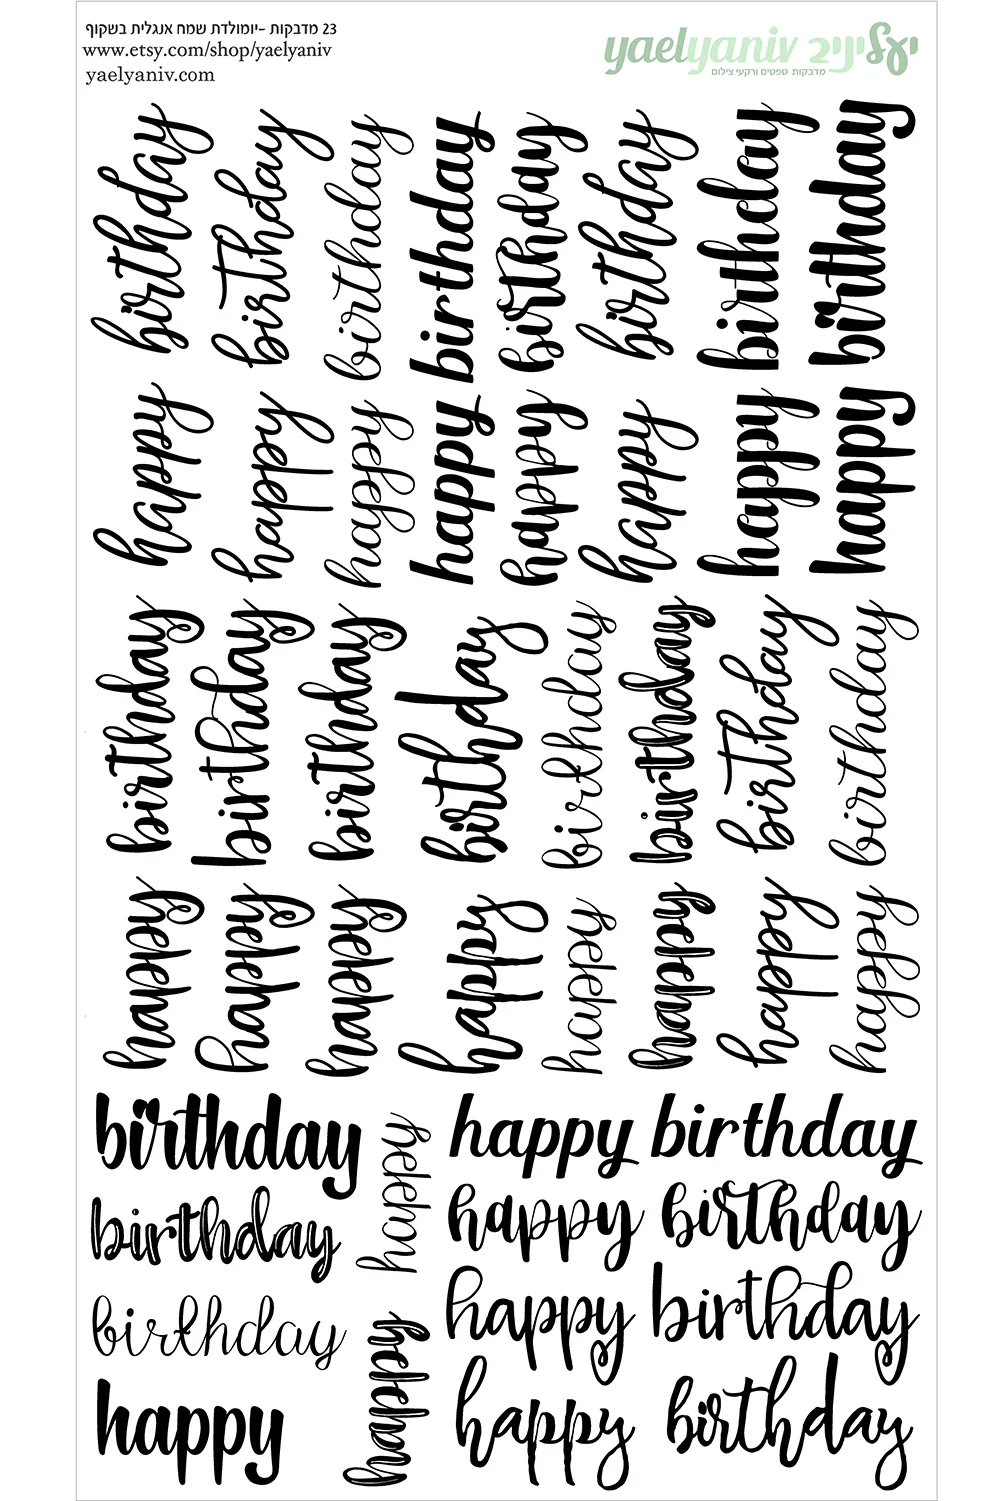 23 מדבקות -יומולדת שמח אנגלית בשקוף
www.etsy.com/shop/yaelyaniv
yaelyaniv.com
yaelyaniv יעל יניב
מדבקות טפטים ורקעי צילום
birthday birthday birthday birthday birthday birthday birthday birthday
happy happy happy happy happy happy happy happy
birthday birthday birthday birthday birthday birthday birthday birthday
happy happy happy happy happy happy happy happy
birthday happy happy birthday
birthday happy birthday
birthday happy happy birthday
happy happy birthday